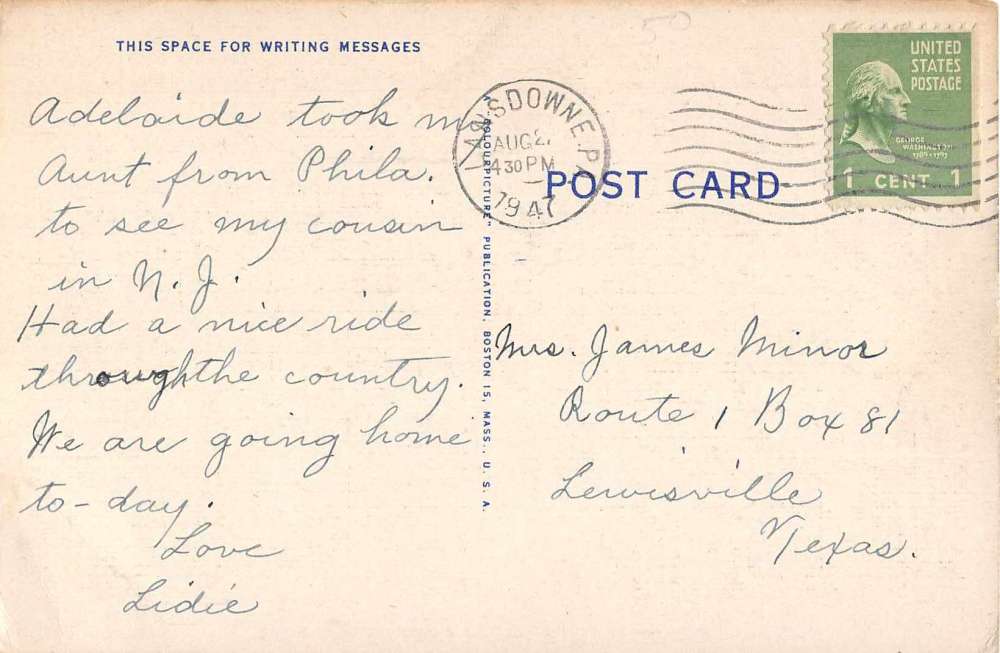 50
THIS SPACE FOR WRITING MESSAGES
Adelaide took my
Aunt from Phila.
to see my cousin
in N. J.
Had a nice ride
throughthe country.
We are going home
to-day.
Love
Lidie
"COLOURPICTURE" PUBLICATION, BOSTON 15, MASS., U. S. A.
LANSDOWNE, PA.
AUG 2
4 30 PM
1947
POST CARD
UNITED
STATES
POSTAGE
GEORGE
WASHINGTON
1789-1797
1 CENT 1
Mrs. James Minor
Route 1 Box 81
Lewisville
Texas.